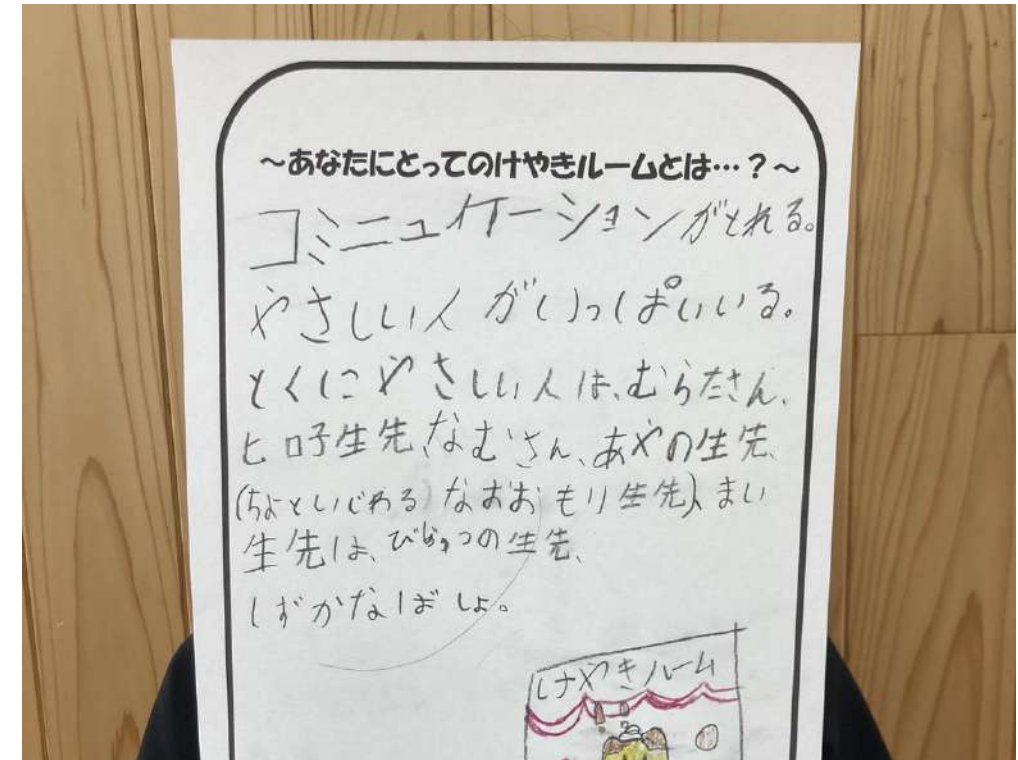 ～あなたにとってのけやきルームとは…？～
コミニュケーションがとれる。
やさしい人がいっぱいいる。
とくにやさしい人は、むらたさん、
ヒロ子生先、なむさん、あやの生先、
(ちよといじわる)なおおもり生先、まい
生先は、びじゅつの生先、
しずかなばしょ。
けやきルーム